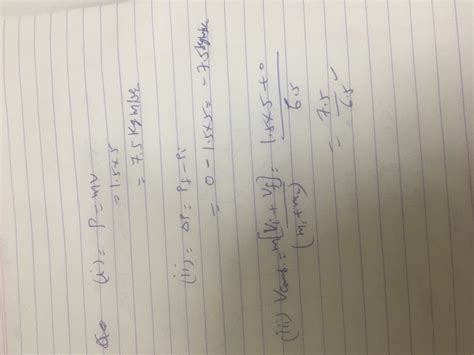 (i) = P = mv
= 1.5 x 5
= 7.5 Kg m/sec
(ii) = ΔP = Pf - Pi
= 0 - 1.5 x 5 = - 7.5 kgm/sec
(iii) Vcomb = m[Vi + Vf] / (m1 + m2) = 1.5 x 5 + 0 / 6.5
= 7.5 / 6.5